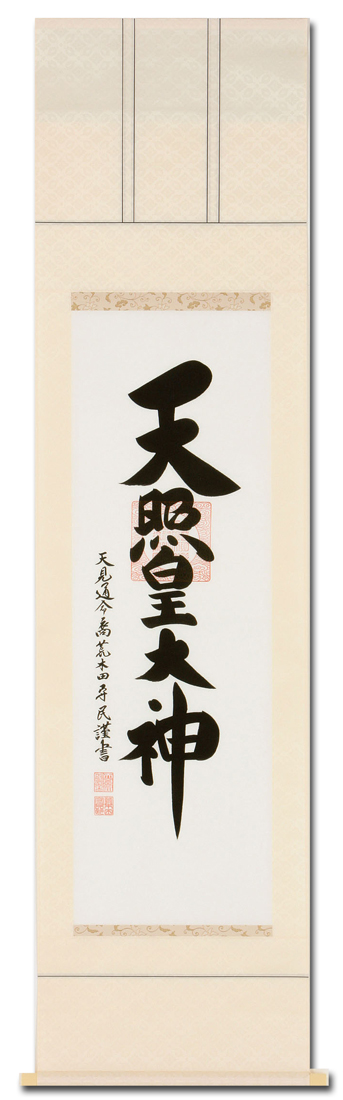 天照皇大神
天見通命裔荒木田守民謹書